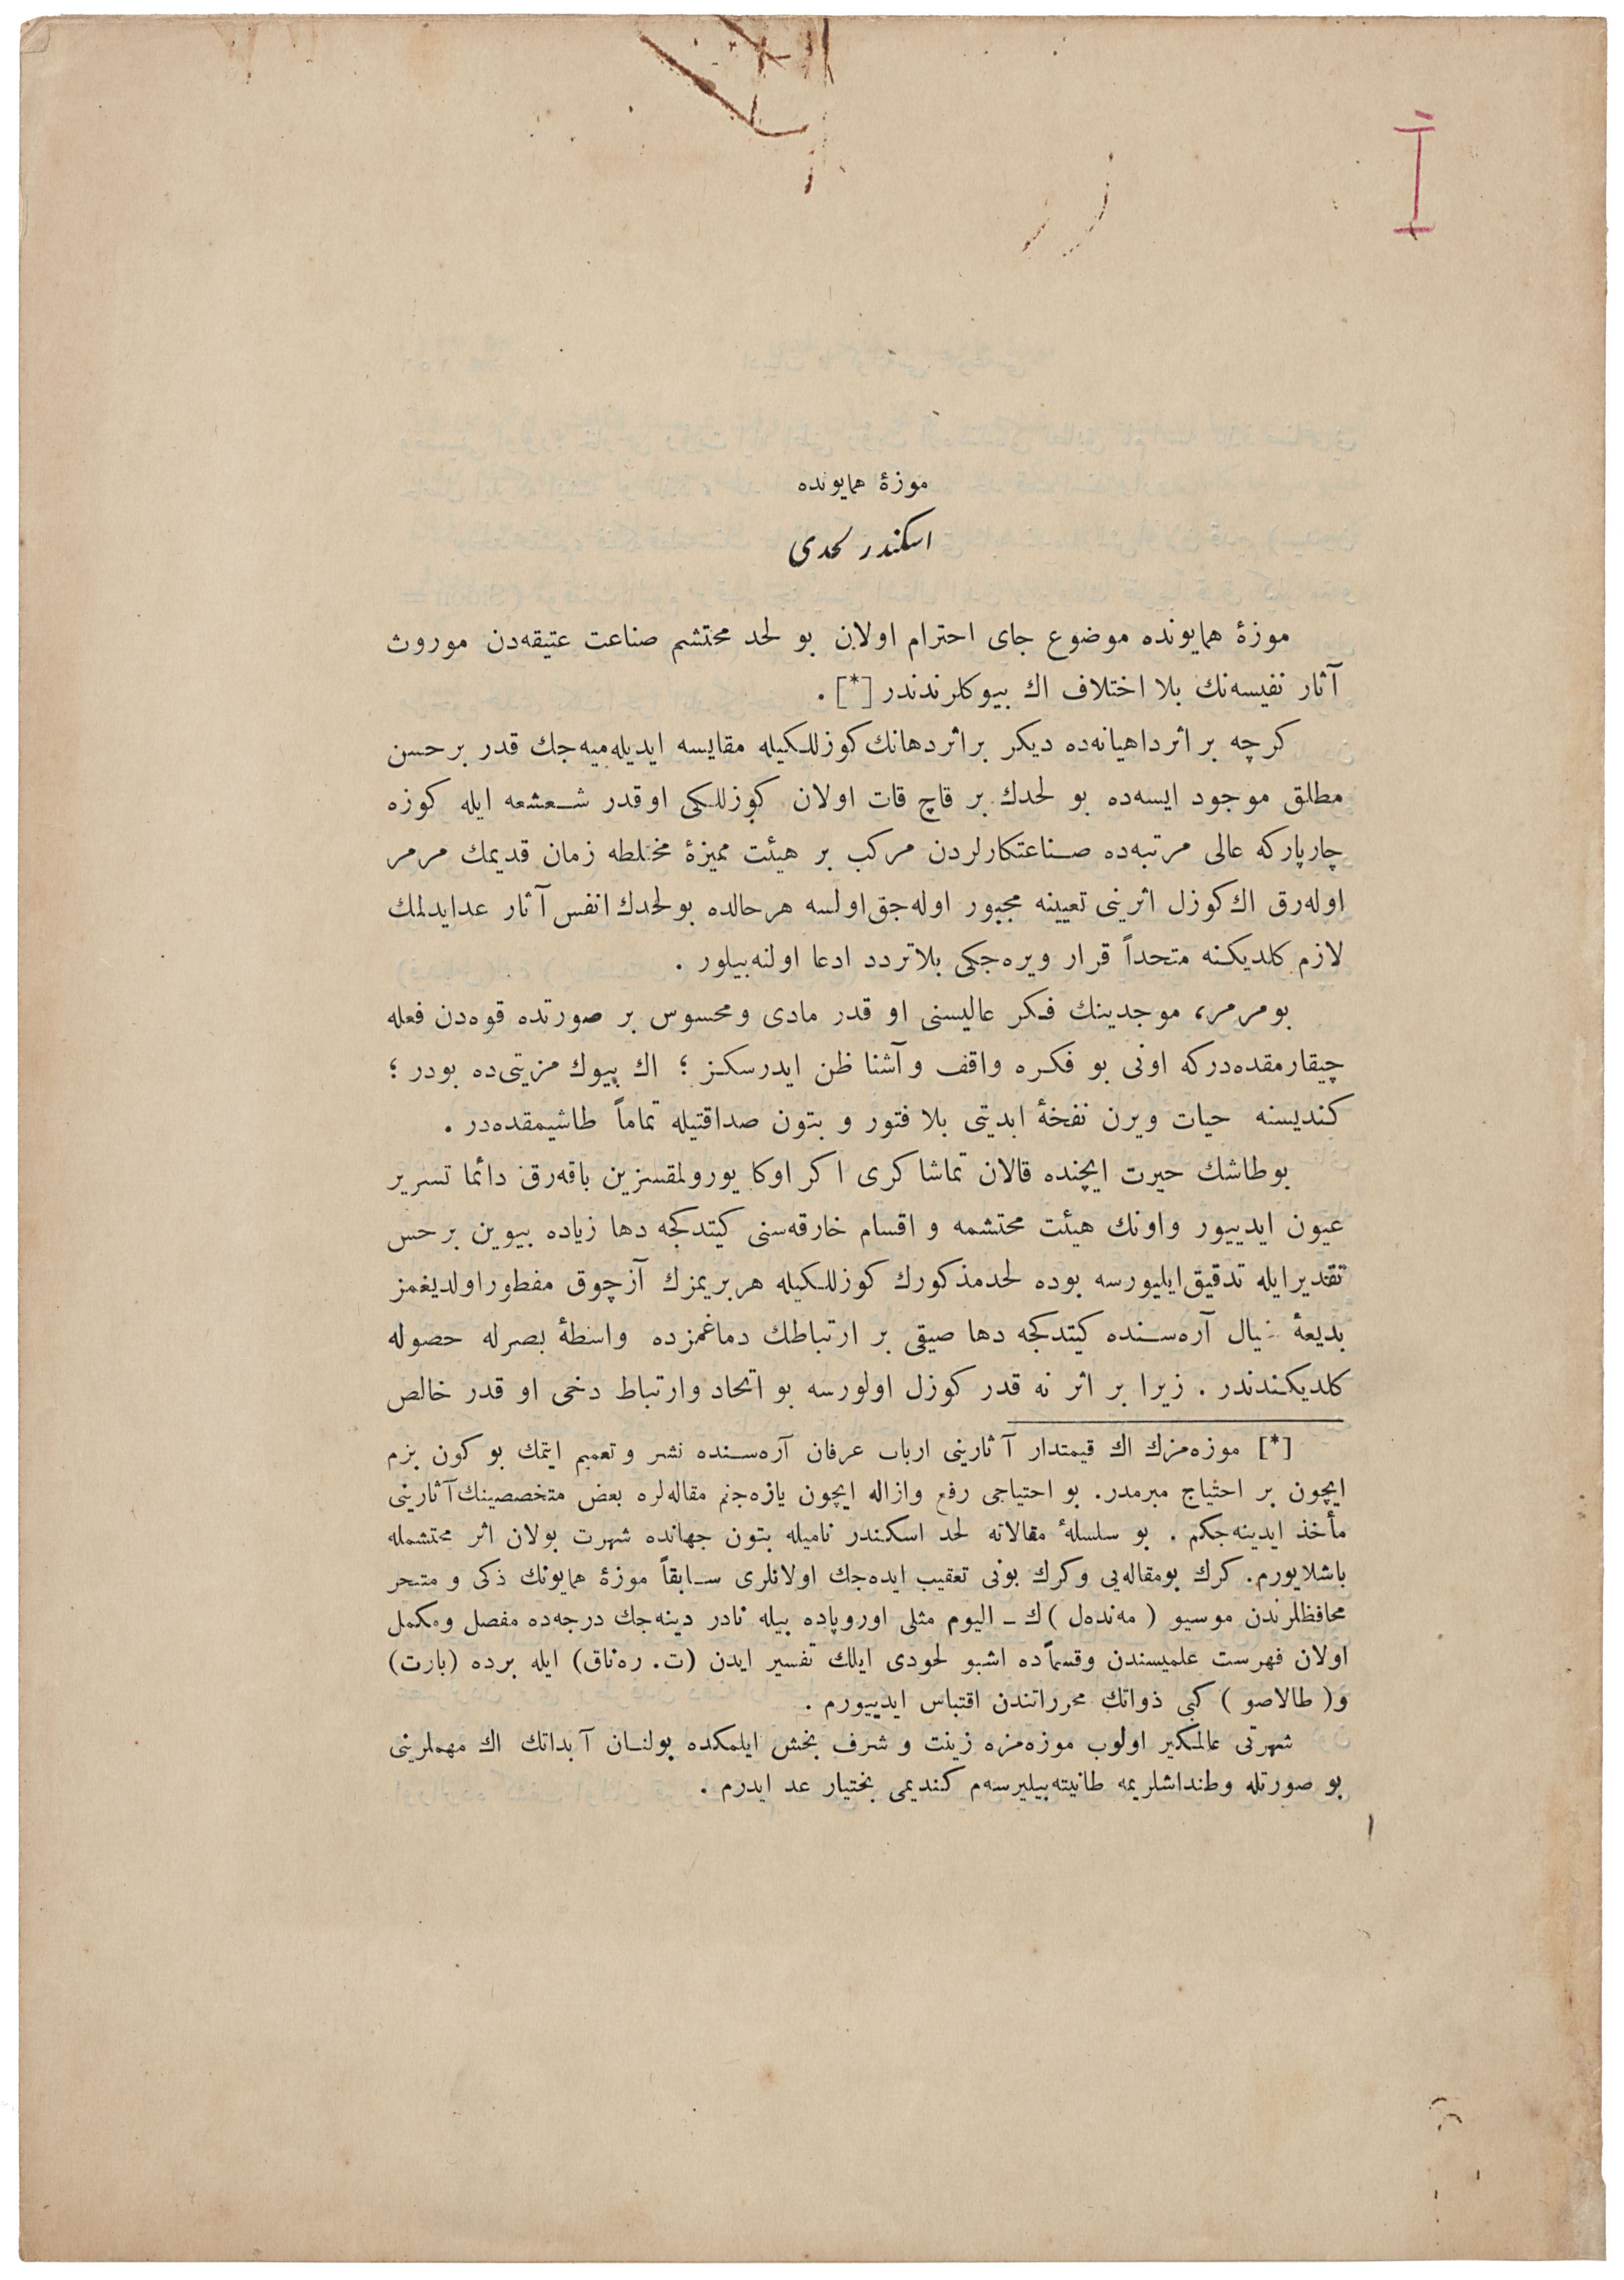 I
موزۀ همایونده
اسكندر لحدی
موزۀ همایونده موضوع جای احترام اولان بو لحد محتشم صناعت عتیقه‌دن موروث
آثار نفیسه‌نك بلا اختلاف اك بیوكلرندندر [*] .
كرچه بر اثرداهیانه‌ده دیكر براثردهانك كوزللكیله مقایسه ایدیله‌میه‌جك قدر بر حسن
مطلق موجود ایسه‌ده بو لحدك بر قاچ قات اولان كوزللكی اوقدر شعشعه ایله كوزه
چارپاركه عالی مرتبه‌ده صناعتكارلردن مركب بر هیئت ممیزۀ مختلطه زمان قدیمك مرمر
اوله‌رق اك كوزل اثرینی تعیینه مجبور اوله‌جق اولسه هرحالده بولحدك انفس آثار عدایدلمك
لازم كلدیكنه متحداً قرار ویره‌جكی بلاتردد ادعا اولنه‌بیلور .
بومرمر، موجدینك فكر عالیسنی او قدر مادی ومحسوس بر صورتده قوه‌دن فعله
چیقارمقده‌دركه اونی بو فكره واقف وآشنا ظن ایدرسكز ؛ اك بیوك مزیتی‌ده بودر ؛
كندیسنه حیات ویرن نفخۀ ابدیتی بلا فتور و بتون صداقتیله تماماً طاشیمقده‌در .
بوطاشك حیرت ایچنده قالان تماشا كری اكر اوكا یورولمقسزین باقه‌رق دائما تسریر
عیون ایدییور واونك هیئت محتشمه و اقسام خارقه‌سنی كیتدكجه دها زیاده بیوین بر حس
تقدیرایله تدقیق ایلیورسه بوده لحدمذكورك كوزللكیله هربریمزك آزچوق مفطوراولدیغمز
بدیعۀ خیال آره‌سنده كیتدكجه دها صیقی بر ارتباطك دماغمزده واسطۀ بصرله حصوله
كلدیكندندر . زیرا بر اثر نه قدر كوزل اولورسه بو اتحاد وارتباط دخی او قدر خالص
[*] موزه‌مزك اك قیمتدار آثارینی ارباب عرفان آره‌سنده نشر و تعمیم ایتمك بو كون بزم
ایچون بر احتیاج مبرمدر. بو احتیاجی رفع وازاله ایچون یازه‌جغم مقاله‌لره بعض متخصصینك آثارینی
مأخذ ایدینه‌جكم . بو سلسلۀ مقالاته لحد اسكندر نامیله بتون جهانده شهرت بولان اثر محتشمله
باشلایورم. كرك بومقاله‌یی وكرك بونی تعقیب ایده‌جك اولانلری سابقاً موزۀ همایونك ذكی و متبحر
محافظلرندن موسیو ( مه‌نده‌ل ) ك ـ الیوم مثلی اوروپاده بیله نادر دینه‌جك درجه‌ده مفصل ومكمل
اولان فهرست علمیسندن وقسماًده اشبو لحودی ایلك تفسیر ایدن (ت. ره‌ناق) ایله برده (بارت)
و( طالاصو ) كبی ذواتك محرراتندن اقتباس ایدییورم .
شهرتی عالمكیر اولوب موزه‌مزه زینت و شرف بخش ایلمكده بولنان آبداتك اك مهملرینی
بو صورتله وطنداشلریمه طانیته‌بیلیرسه‌م كندیمی بختیار عد ایدرم .